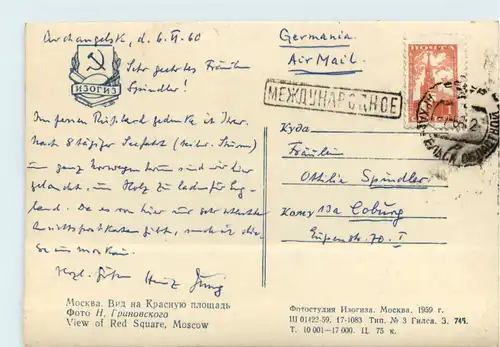 Archangelsk, d. 6. VI. 60
Germania
Air Mail.
ПОЧТА
ИЗОГИЗ
Sehr geehrtes Fräulein
Spindler!
МЕЖДУНАРОДНОЕ
Im fernen Rußland gedenke ich Ihrer.
Nach 8 tägiger Seefahrt
um ganz Norwegen herum sind wir hier
gelandet, um Holz zu laden für Eng-
land. Da es von hier nur sehr schlechte
Ansichtspostkarten gibt, sende ich die-
se aus Moskau.
Herzl. Grüße Heinz Jung
Куда
Fräulein
Othilie Spindler
Кому 13a Coburg
70 I
Москва. Вид на Красную площадь
Фото Н. Грановского
View of Red Square, Moscow
Фотостудия Изогиза. Москва, 1959 г.
Ш 01422-59. 17-1083 Тип. № 3 Гилса. З. 745.
Т. 10 001—17 000. Ц. 75 к.